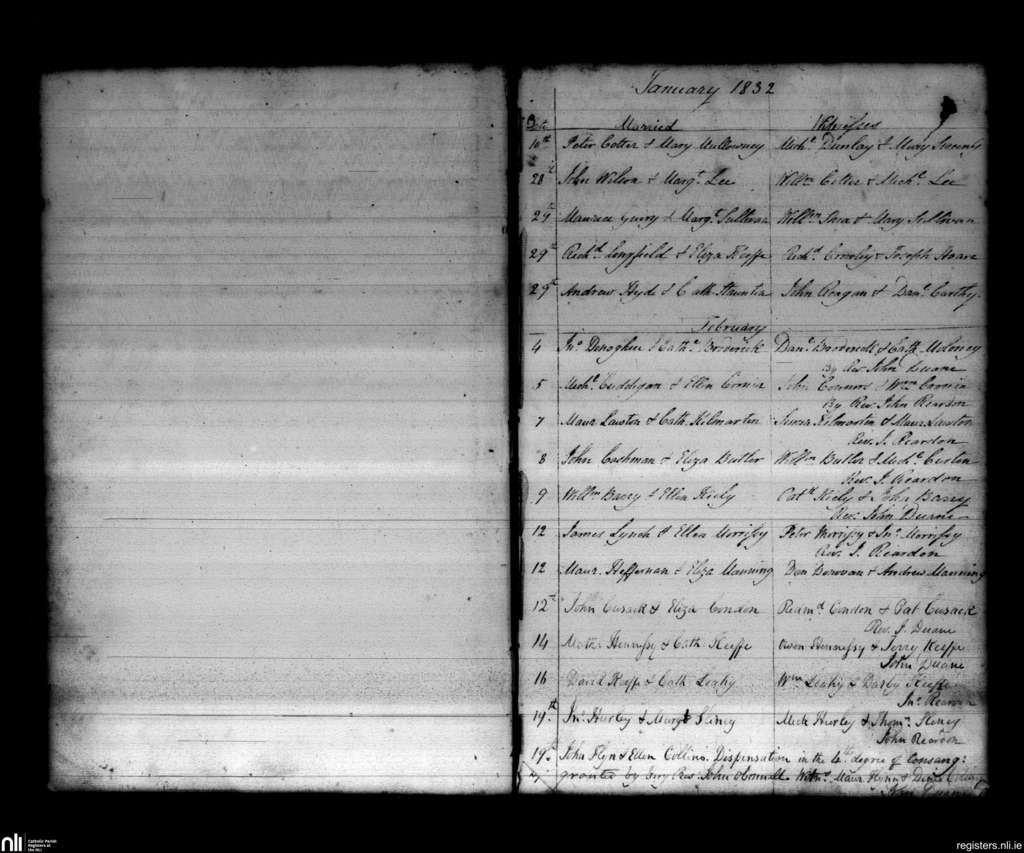 January 1832
Date Married Witnesses
10th Peter Cotter & Mary Mullowney Michl. Dunlay & Mary Sweeny
28th John Wilson & Margt. Lee Willm Cotter & Michl. Lee
29th Maurice & Margt. Sullivan Willm Shea & Mary Sullivan
29th Richd. Longfield & Eliza Keeffe Richd. Crowley & Joseph Hoare
29th Andrew Hyde & Cath. Staunton John Reagan & Danl. Carthy.
February
4 Jno. Donoghue & Cathe. Broderick Danl. Broderick & Cath. Moloney
By Rev John Duane
5 Michl. Cuddigan & Ellen Cronin John Connors & Wm Cronin
By Rev. John Reardon
7 Maur Lawton & Cath. Kilmartin Kilmartin & Maur. Lawton
Rev. J. Reardon
8 John Cashman & Eliza Butler Willm Butler & Michl.
Rev. J. Reardon
9 Willm Barry & Ellen Kiely Patk Kiely & John Barry
Rev. John Duane
12 James Lynch & Ellen Morrissy Peter Morrissy & Jno. Morrissy
Rev. J. Reardon
12 Maur. Heffernan & Eliza Manning Dan Donovan & Andrew Manning
12th John Cusack & Eliza Condon Redmd Condon & Pat Cusack
Rev. J. Duane
14 Hennessy & Cath. Keeffe Owen Hennessy & Jerry Keeffe
John Duane
16 David Keeffe & Cath Leahy Wm Leahy & Darby Keeffe
Jno. Reardon
19th Jno. Hurley & Margt Sliney Mick Hurley & Thoms. Sliney
John Reardon
19th John Flyn & Ellen Collins. Dispensation in the 4th degree of Consang:
granted by Very Rev. John OConnell. Witns. Maur. Flynn & Denis Collins
John Duane